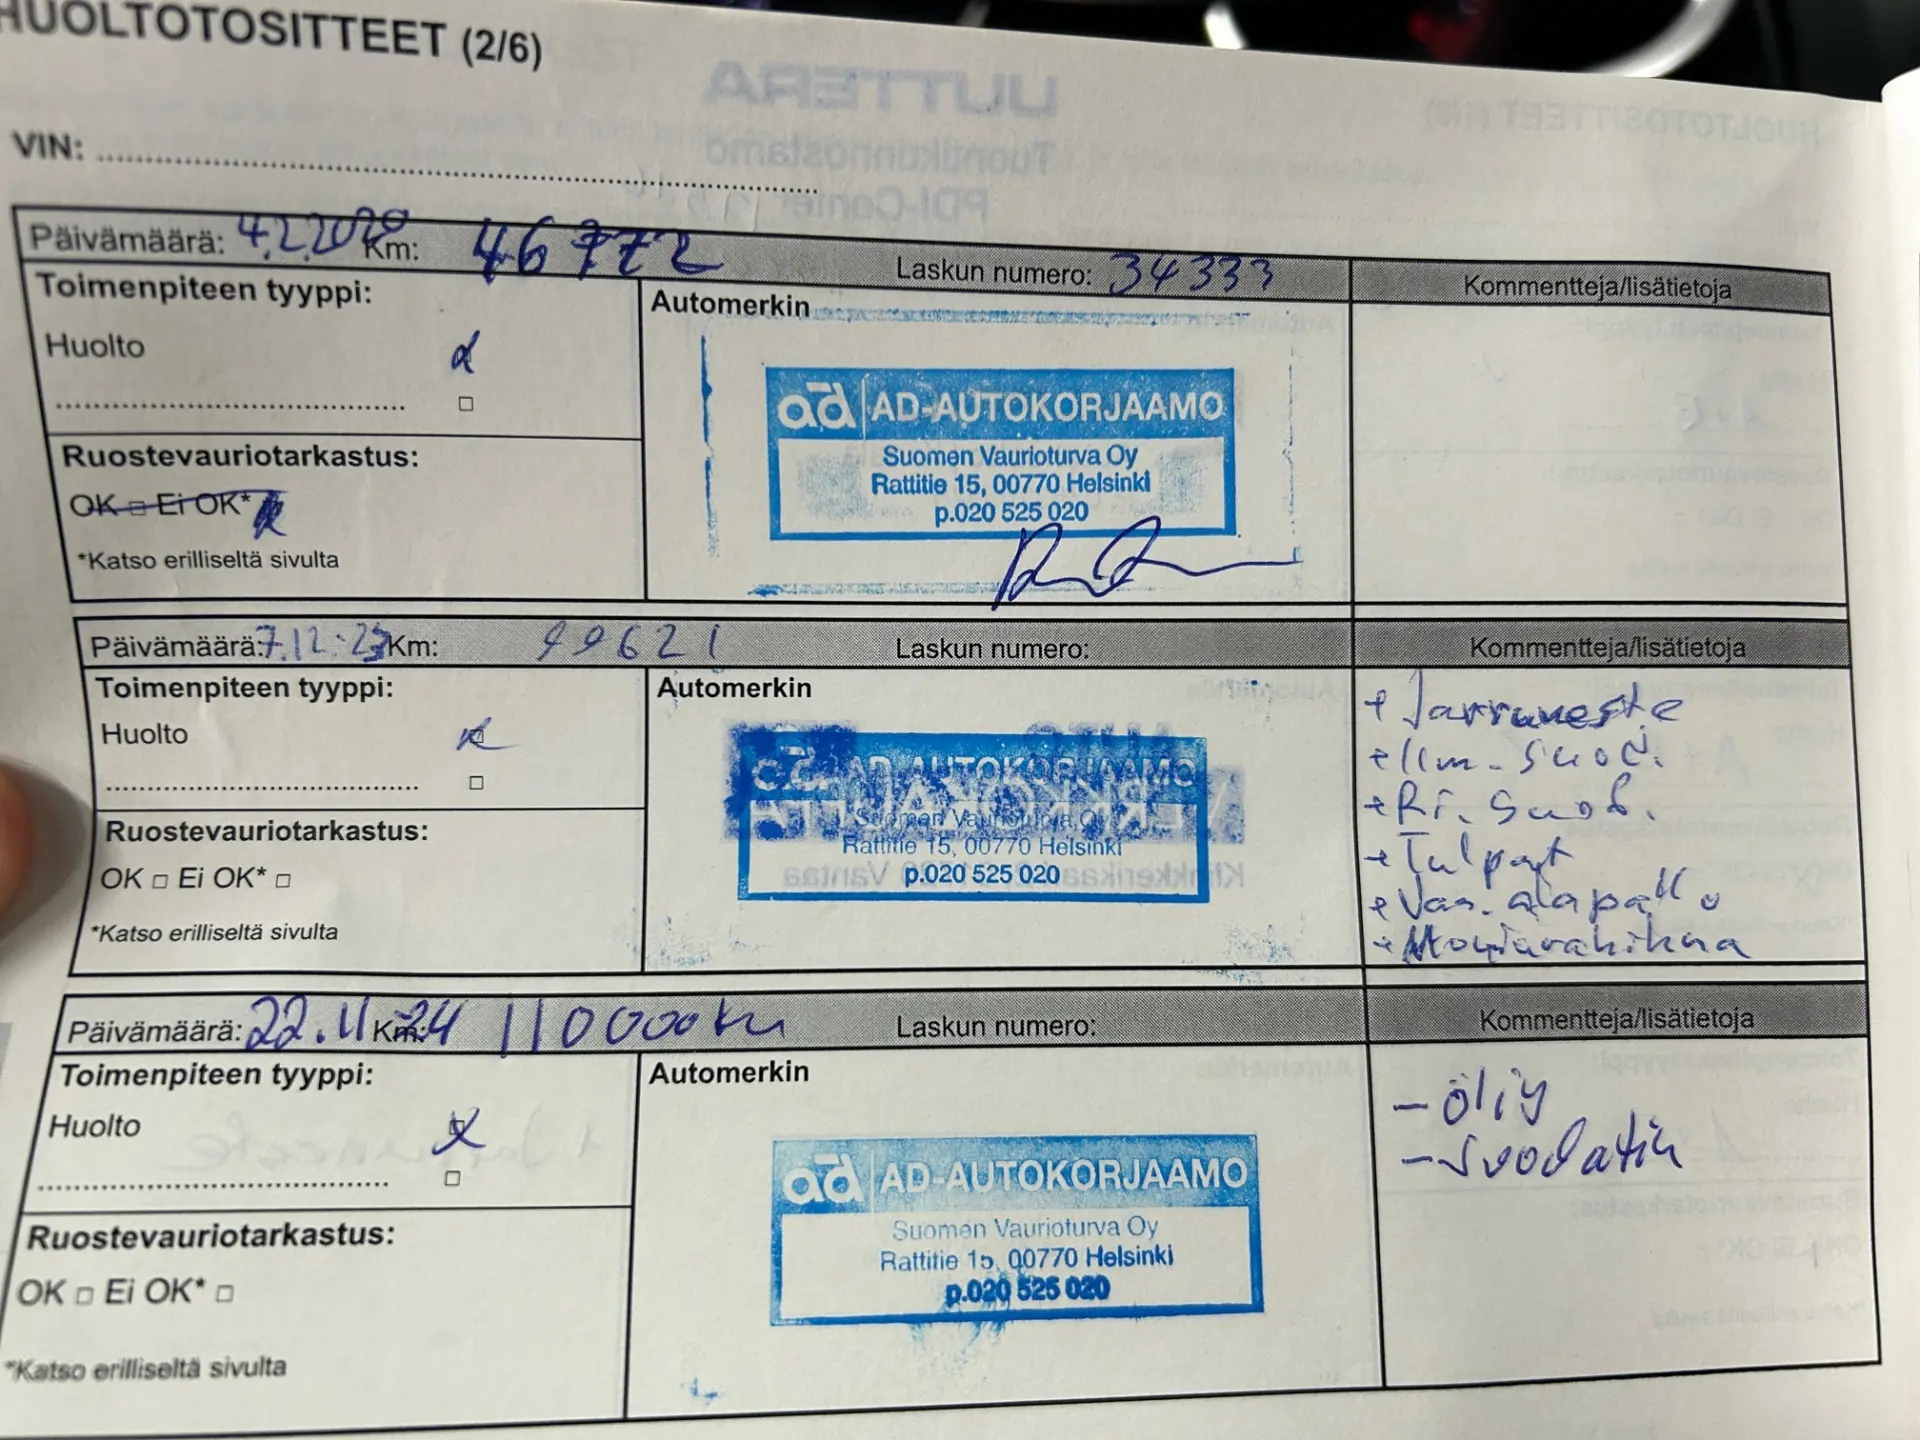 HUOLTOTOSITTEET (2/6)
VIN:
Päivämäärä: 4.2.2020 Km: 46772 Laskun numero: 34333 Kommentteja/lisätietoja
Toimenpiteen tyyppi:
Huolto
Automerkin
AD-AUTOKORJAAMO
Suomen Vaurioturva Oy
Rattitie 15, 00770 Helsinki
p.020 525 020
Ruostevauriotarkastus:
OK □ Ei OK*
*Katso erilliseltä sivulta
Päivämäärä: 7.12.23 Km: 99621 Laskun numero: Kommentteja/lisätietoja
Toimenpiteen tyyppi:
Huolto
□
Automerkin
ad AD-AUTOKORJAAMO
Suomen Vaurioturva Oy
Rattitie 15, 00770 Helsinki
p.020 525 020
+ Jarruneste
+ Ilm. suod.
+ Ri. suod.
+ Tulpat
+ Van. alapallo
+ Moniurahihna
Ruostevauriotarkastus:
OK □ Ei OK* □
*Katso erilliseltä sivulta
Päivämäärä: 22.11.24 Km: 110000km Laskun numero: Kommentteja/lisätietoja
Toimenpiteen tyyppi:
Huolto
□
Automerkin
ad AD-AUTOKORJAAMO
Suomen Vaurioturva Oy
Rattitie 15, 00770 Helsinki
p.020 525 020
- öljy
- suodatin
Ruostevauriotarkastus:
OK □ Ei OK* □
*Katso erilliseltä sivulta